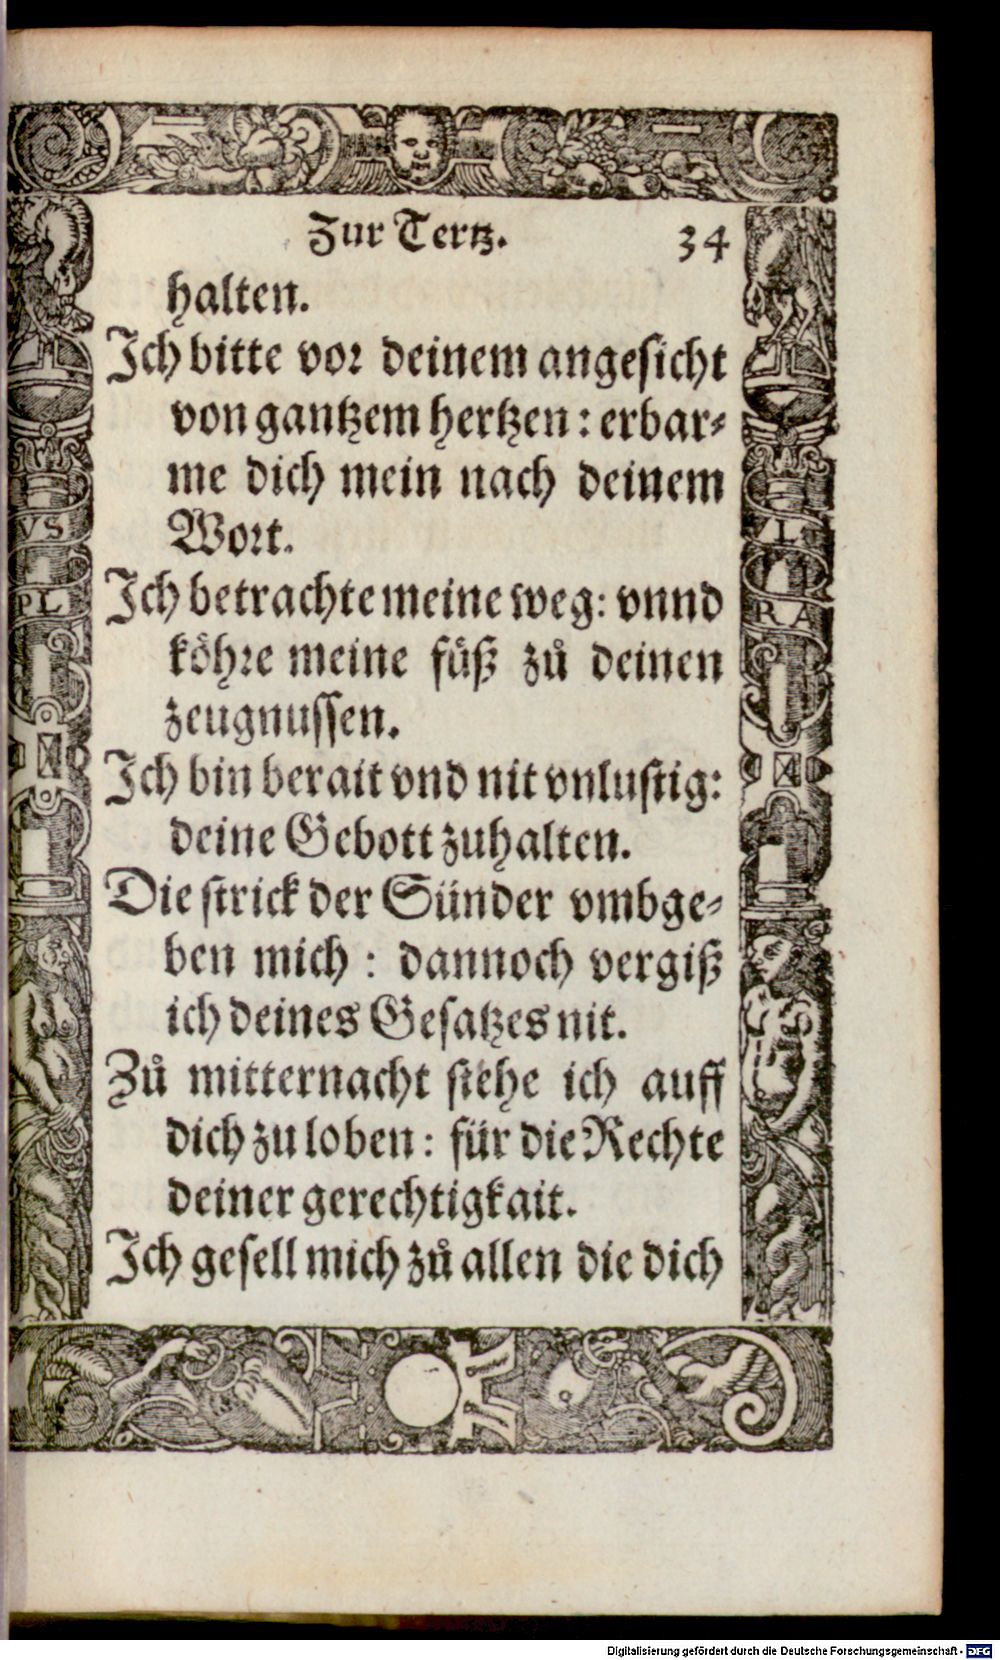 Zur Tertz. 34
halten.
Ich bitte vor deinem angesicht
von gantzem hertzen: erbar⸗
me dich mein nach deinem
Wort.
Ich betrachte meine weg: vnnd
köhre meine füß zů deinen
zeugnussen.
Ich bin berait vnd nit vnlustig:
deine Gebott zuhalten.
Die strick der Sünder vmbge⸗
ben mich: dannoch vergiß
ich deines Gesatzes nit.
Zů mitternacht stehe ich auff
dich zu loben: für die Rechte
deiner gerechtigkait.
Ich gesell mich zů allen die dich
VS
PL
VL
RA
Digitalisierung gefördert durch die Deutsche Forschungsgemeinschaft - DFG